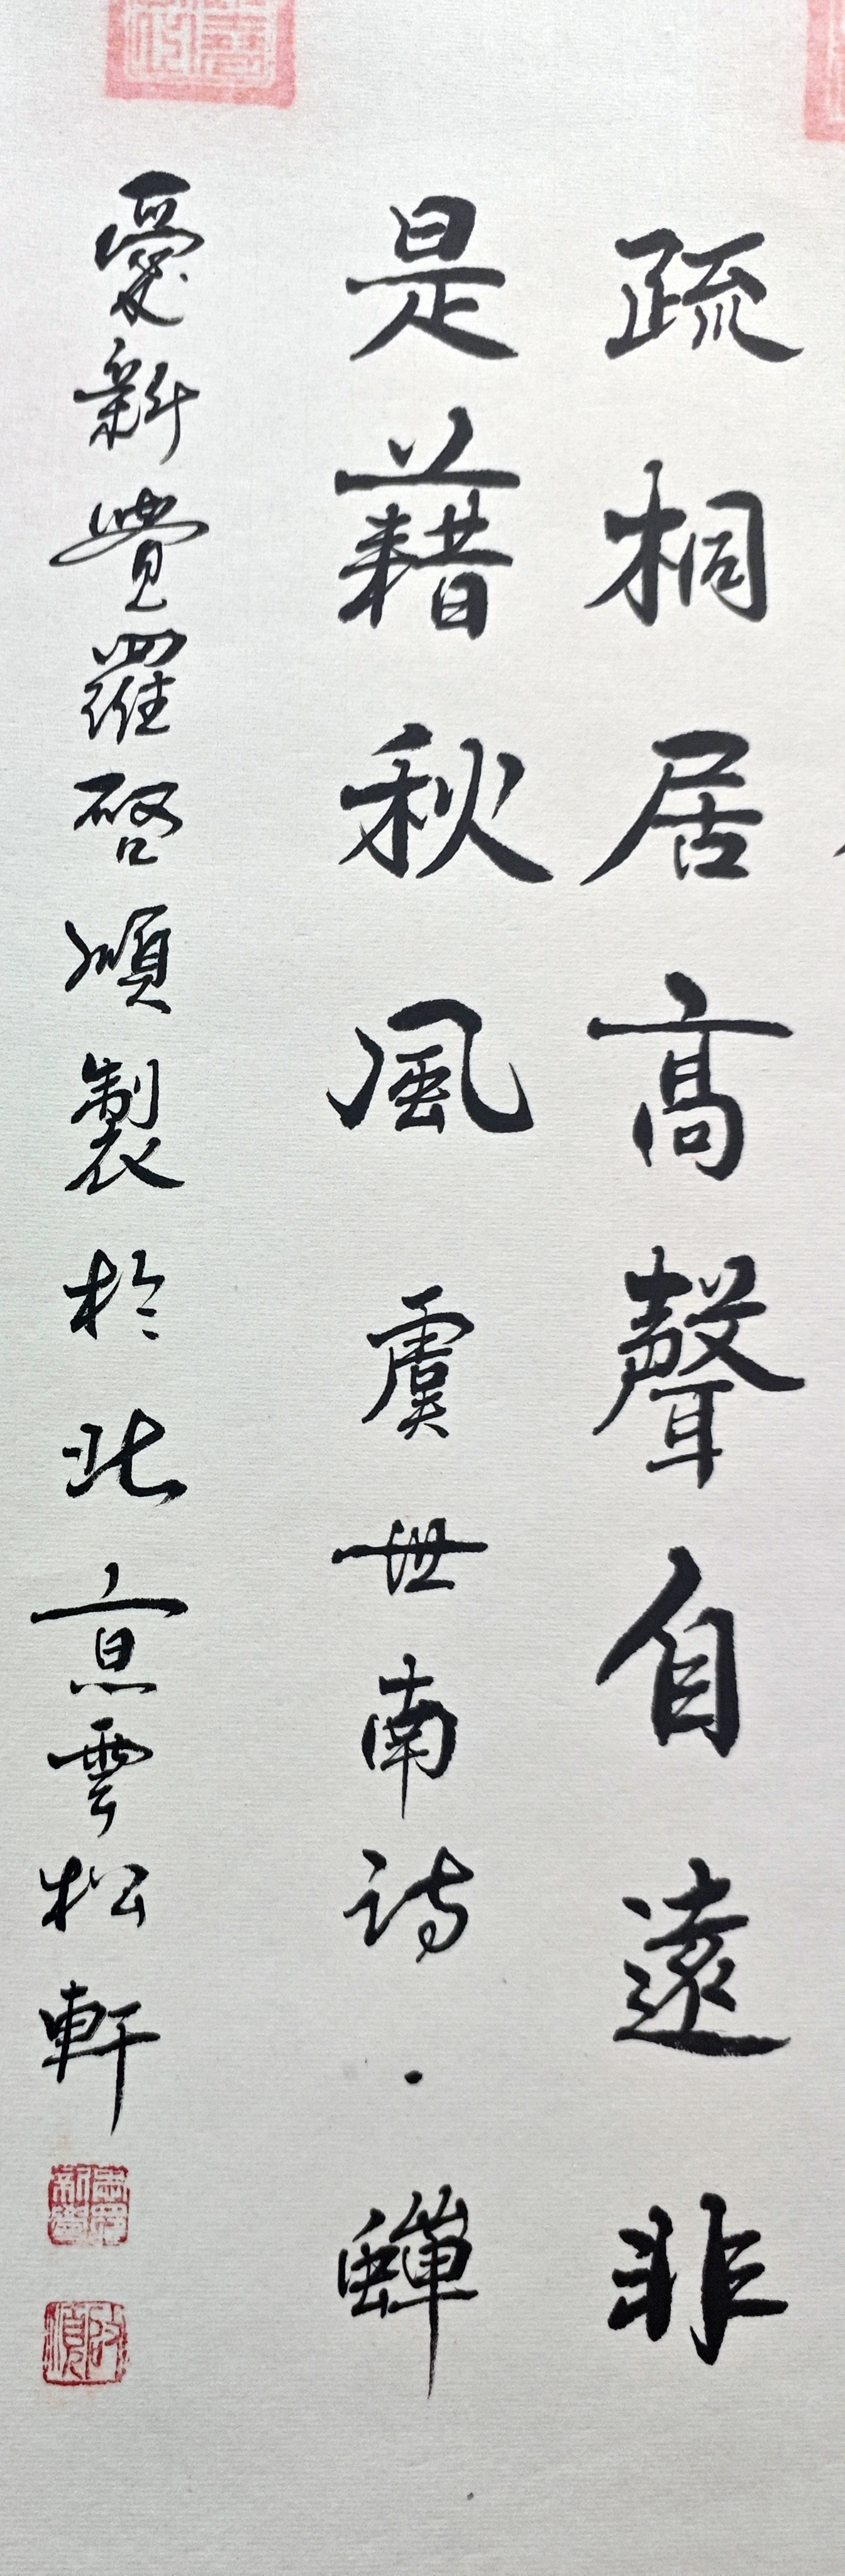 疏桐居高聲自遠非
是藉秋風 虞世南詩·蟬
愛新覺羅啓順製於北京雲松軒
愛新覺羅
啟順